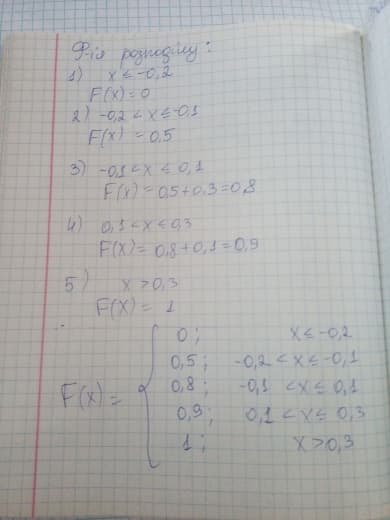 Ф-ія розподілу:
1) x ≤ -0,2
F(x) = 0
2) -0,2 < x ≤ -0,1
F(x) = 0,5
3) -0,1 < x ≤ 0,1
F(x) = 0,5 + 0,3 = 0,8
4) 0,1 < x ≤ 0,3
F(x) = 0,8 + 0,1 = 0,9
5) x > 0,3
F(x) = 1
0; x ≤ -0,2
0,5; -0,2 < x ≤ -0,1
0,8; -0,1 < x ≤ 0,1
F(x) = {
0,9; 0,1 < x ≤ 0,3
1; x > 0,3